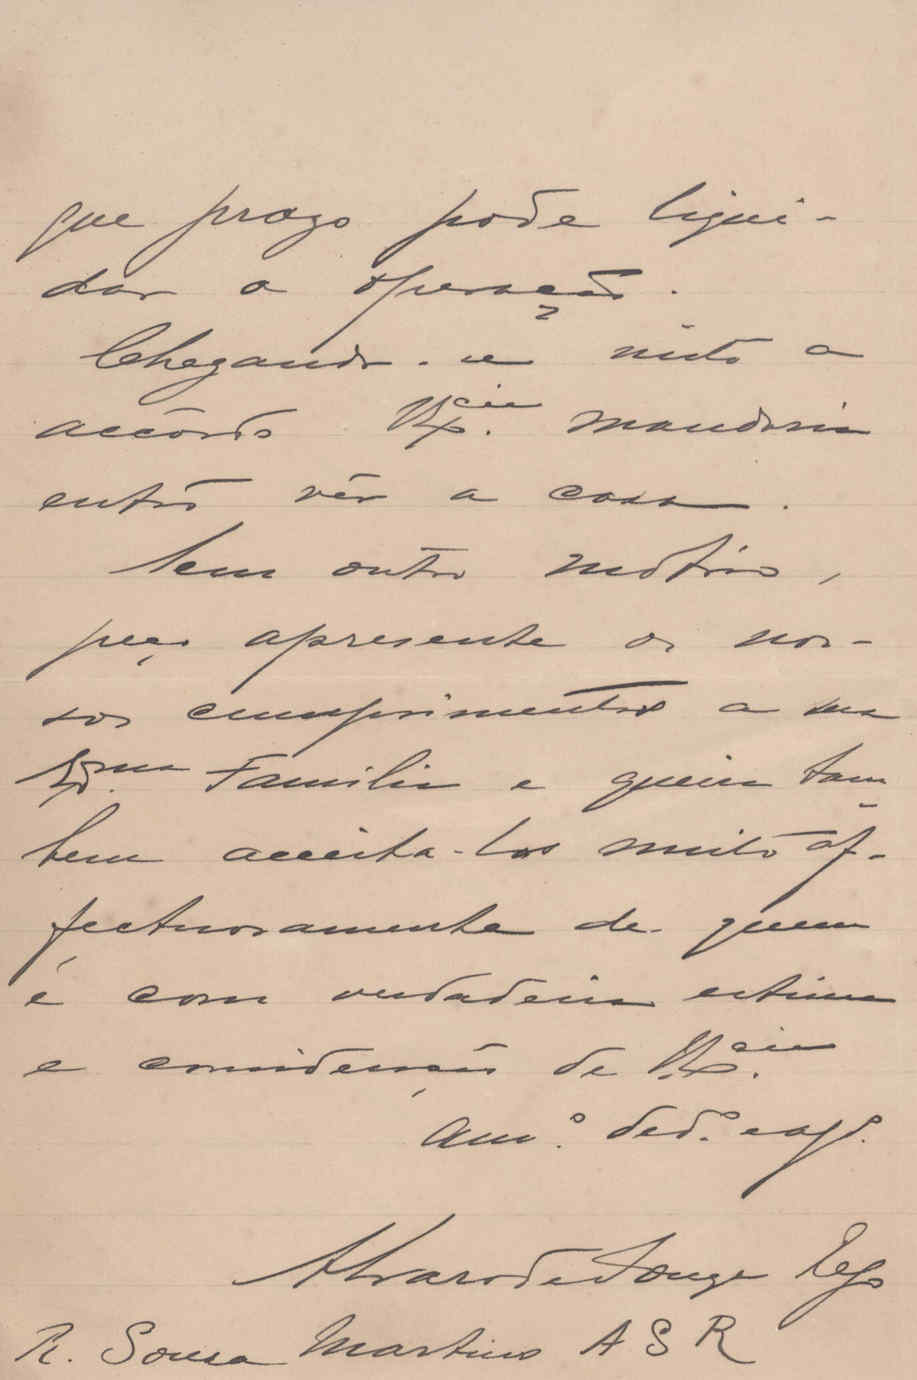 que prazo pode liqui-
dar a operação.
Chegando-se nisto a
accôrdo V. Ex.cia mandaria
então vêr a casa.
Sem outro motivo,
peço apresente os nos-
sos cumprimentos a sua
Ex.ma Familia e queira tam
bem acceita-los muito af-
fectuosamente de quem
é com verdadeira estima
e consideração de V. Ex.cia
Am.º ded.º e
Alvaro de Souza Rego
R. Sousa Martins A S R